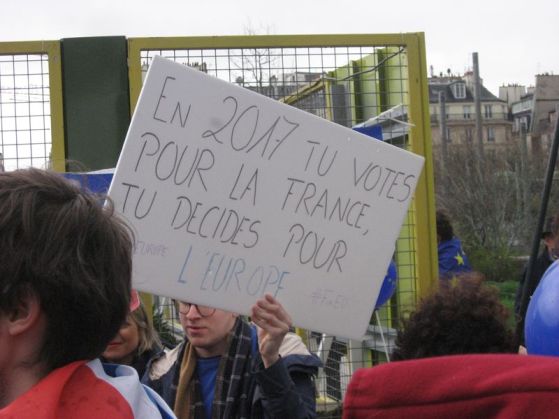 EN 2017 TU VOTES
POUR LA FRANCE,
TU DECIDES POUR
L'EUROPE